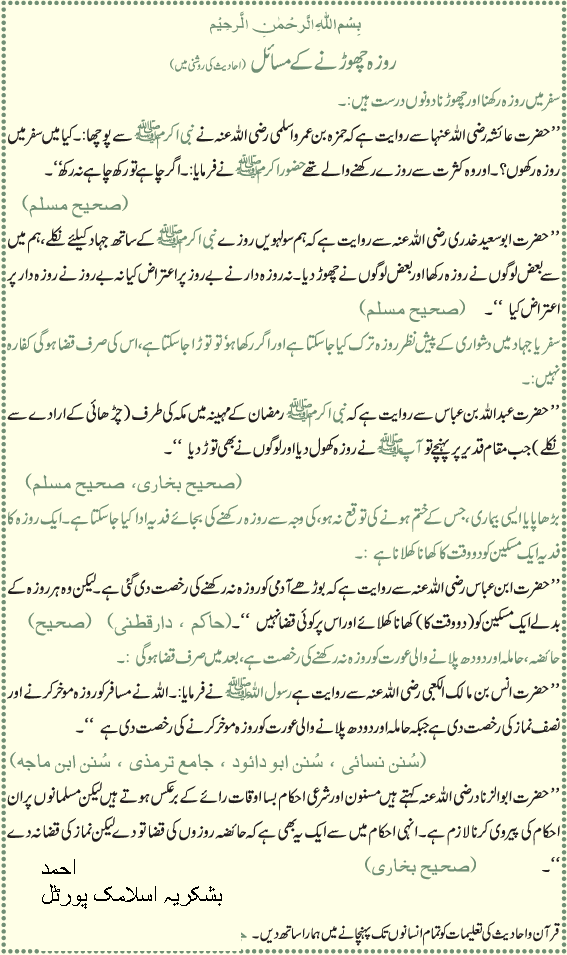 بِسْمِ اللهِ الرَّحْمٰنِ الرَّحِيْمِ
روزہ چھوڑنے کے مسائل (احادیث کی روشنی میں)
سفر میں روزہ رکھنا اور چھوڑنا دونوں درست ہیں:۔
’’حضرت عائشہ رضی اللہ عنہا سے روایت ہے کہ حمزہ بن عمرو اسلمی رضی اللہ عنہ نے نبی اکرم ﷺ سے پوچھا:۔کیا میں سفر میں
روزہ رکھوں؟۔اور وہ کثرت سے روزے رکھنے والے تھے حضور اکرم ﷺ نے فرمایا:۔اگر چاہے تو رکھ چاہے نہ رکھ‘‘۔
(صحیح مسلم)
’’حضرت ابوسعید خدری رضی اللہ عنہ سے روایت ہے کہ ہم سولہویں روزے نبی اکرم ﷺ کے ساتھ جہاد کیلئے نکلے، ہم میں
سے بعض لوگوں نے روزہ رکھا اور بعض لوگوں نے چھوڑ دیا۔نہ روزہ دار نے بے روز پر اعتراض کیا نہ بے روز نے روزہ دار پر
اعتراض کیا ‘‘۔ (صحیح مسلم)
سفر یا جہاد میں دشواری کے پیش نظر روزہ ترک کیا جاسکتا ہے اور اگر رکھا ہو تو توڑا جاسکتا ہے، اس کی صرف قضا ہوگی کفارہ
نہیں:۔
’’حضرت عبداللہ بن عباس سے روایت ہے کہ نبی اکرم ﷺ رمضان کے مہینہ میں مکہ کی طرف (چڑھائی کے ارادے سے
نکلے) جب مقام قدیر پر پہنچے تو آپ ﷺ نے روزہ کھول دیا اور لوگوں نے بھی توڑ دیا ‘‘۔
(صحیح بخاری، صحیح مسلم)
بڑھاپا یا ایسی بیماری ،جس کے ختم ہونے کی توقع نہ ہو، کی وجہ سے روزہ رکھنے کی بجائے فدیہ ادا کیا جاسکتا ہے۔ ایک روزہ کا
فدیہ ایک مسکین کو دو وقت کا کھانا کھلانا ہے :۔
’’حضرت ابن عباس رضی اللہ عنہ سے روایت ہے کہ بوڑھے آدمی کو روزہ نہ رکھنے کی رخصت دی گئی ہے۔لیکن وہ ہر روزہ کے
بدلے ایک مسکین کو (دو وقت کا) کھانا کھلائے اور اس پر کوئی قضا نہیں ‘‘۔(حاکم ، دارقطنی) (صحیح)
حائضہ، حاملہ اور دودھ پلانے والی عورت کو روزہ نہ رکھنے کی رخصت ہے، بعد میں صرف قضا ہوگی :۔
’’حضرت انس بن مالک الکعبی رضی اللہ عنہ سے روایت ہے رسول اللہ ﷺ نے فرمایا:۔ اللہ نے مسافر کو روزہ موخر کرنے اور
نصف نماز کی رخصت دی ہے جبکہ حاملہ اور دودھ پلانے والی عورت کو روزہ موخر کرنے کی رخصت دی ہے ‘‘۔
(سُنن نسائی ، سُنن ابو دائود ، جامع ترمذی ، سُنن ابن ماجه)
’’حضرت ابوالزناد رضی اللہ عنہ کہتے ہیں مسنون اور شرعی احکام بسا اوقات رائے کے برعکس ہوتے ہیں لیکن مسلمانوں پر ان
احکام کی پیروی کرنا لازم ہے۔انہی احکام میں سے ایک یہ بھی ہے کہ حائضہ روزوں کی قضا تو دے لیکن نماز کی قضا نہ دے
‘‘۔ (صحیح بخاری)
احمد
بشکریہ اسلامک پورٹل
قرآن و احادیث کی تعلیمات کو تمام انسانوں تک پہنچانے میں ہمارا ساتھ دیں۔